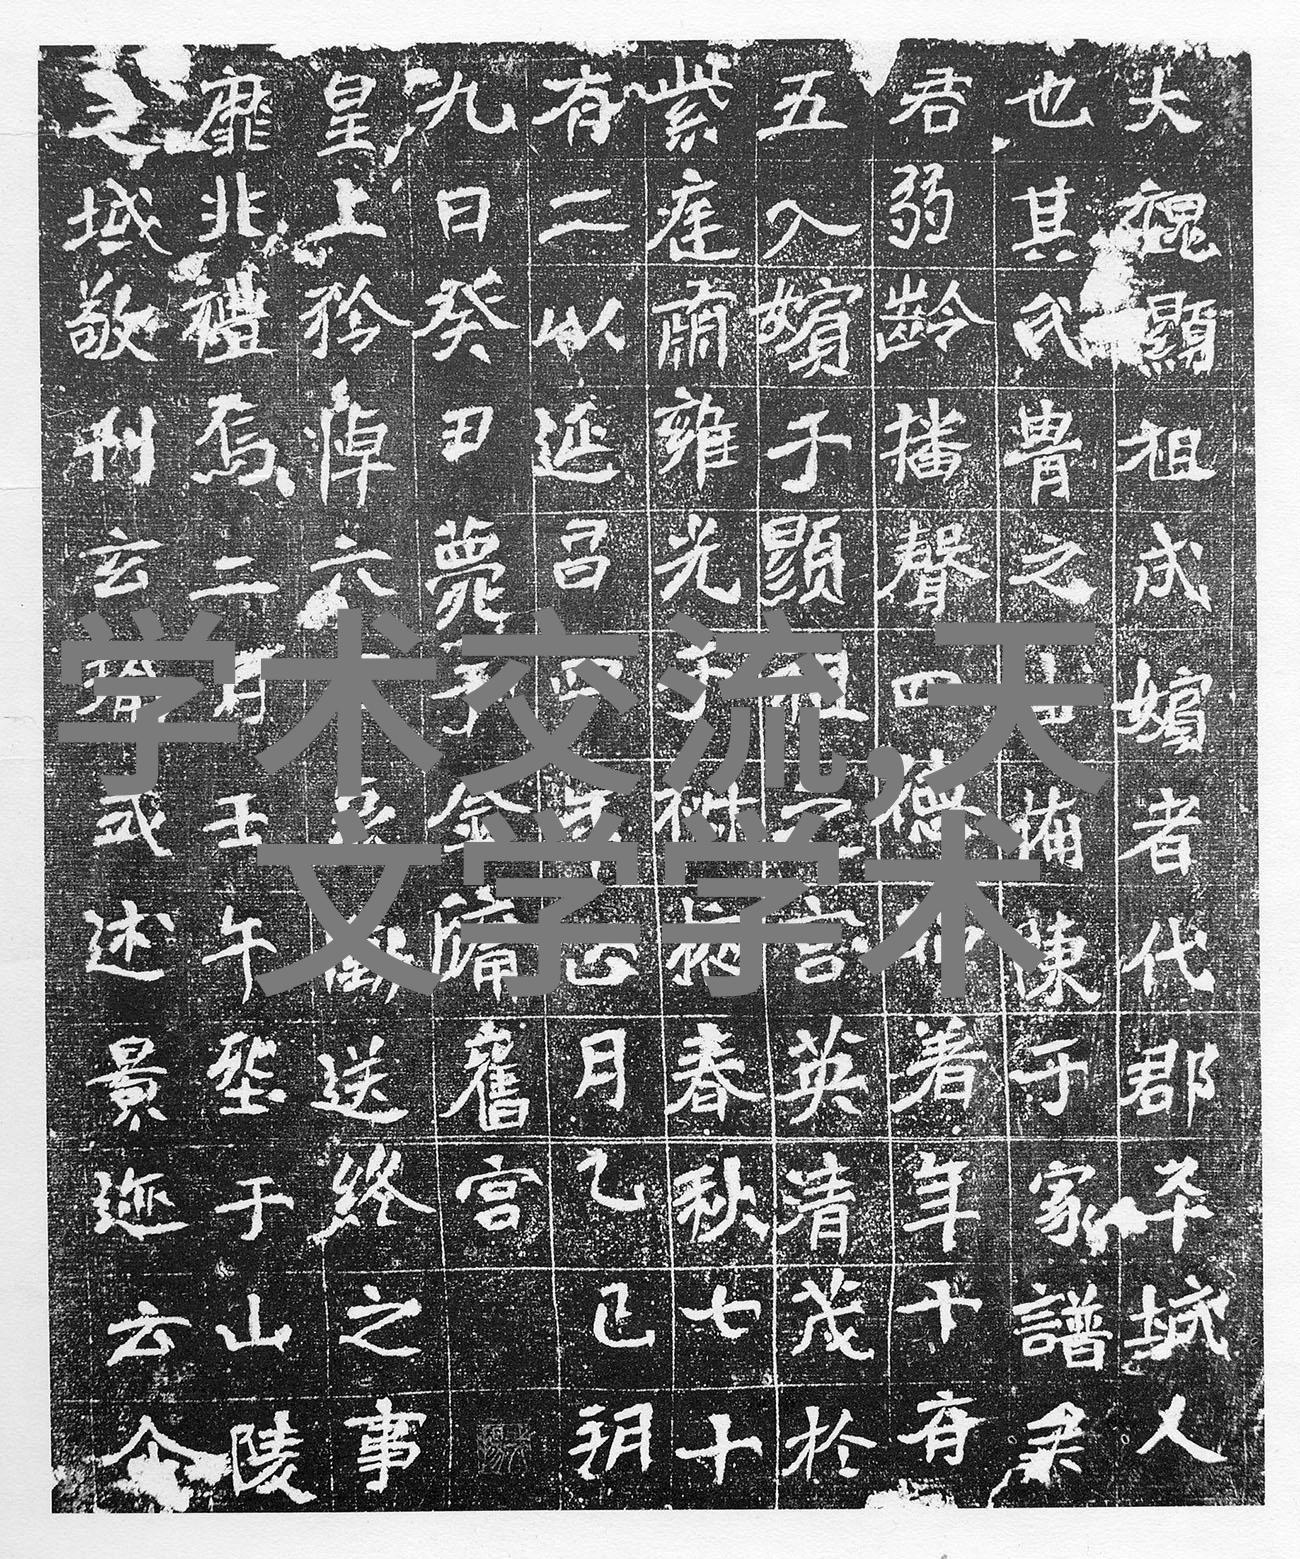 大魏顯祖成嬪者代郡平城人
也其氏胄之由備陳于家譜
君弱齡播聲四德著年十有
五入嬪于顯祖言英清茂於
紫庭肅雍光于椒掖春秋七十
有二以延昌四年正月乙巳朔
九日癸丑薨于金墉舊宮
皇上矜悼六哀慟送終之事
靡非禮焉二月壬午塟于山陵
之域敬刊玄式述景迹云尒
学术交流,天
文学学术